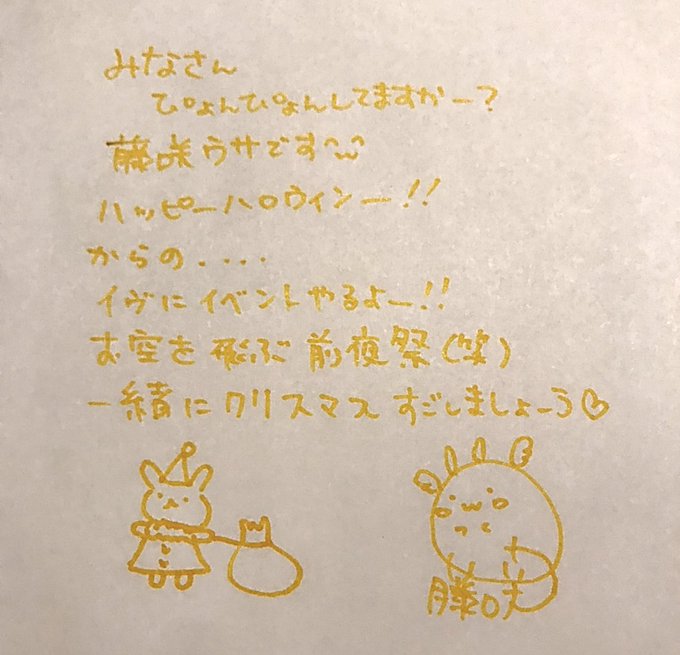 みなさん
ぴょんぴょんしてますかー?
藤咲ウサです^ω^
ハッピーハロウィンー!!
からの....
イヴにイベントやるよー!!
お空を飛ぶ前夜祭(笑)
一緒にクリスマスすごしましょーう♡
藤咲